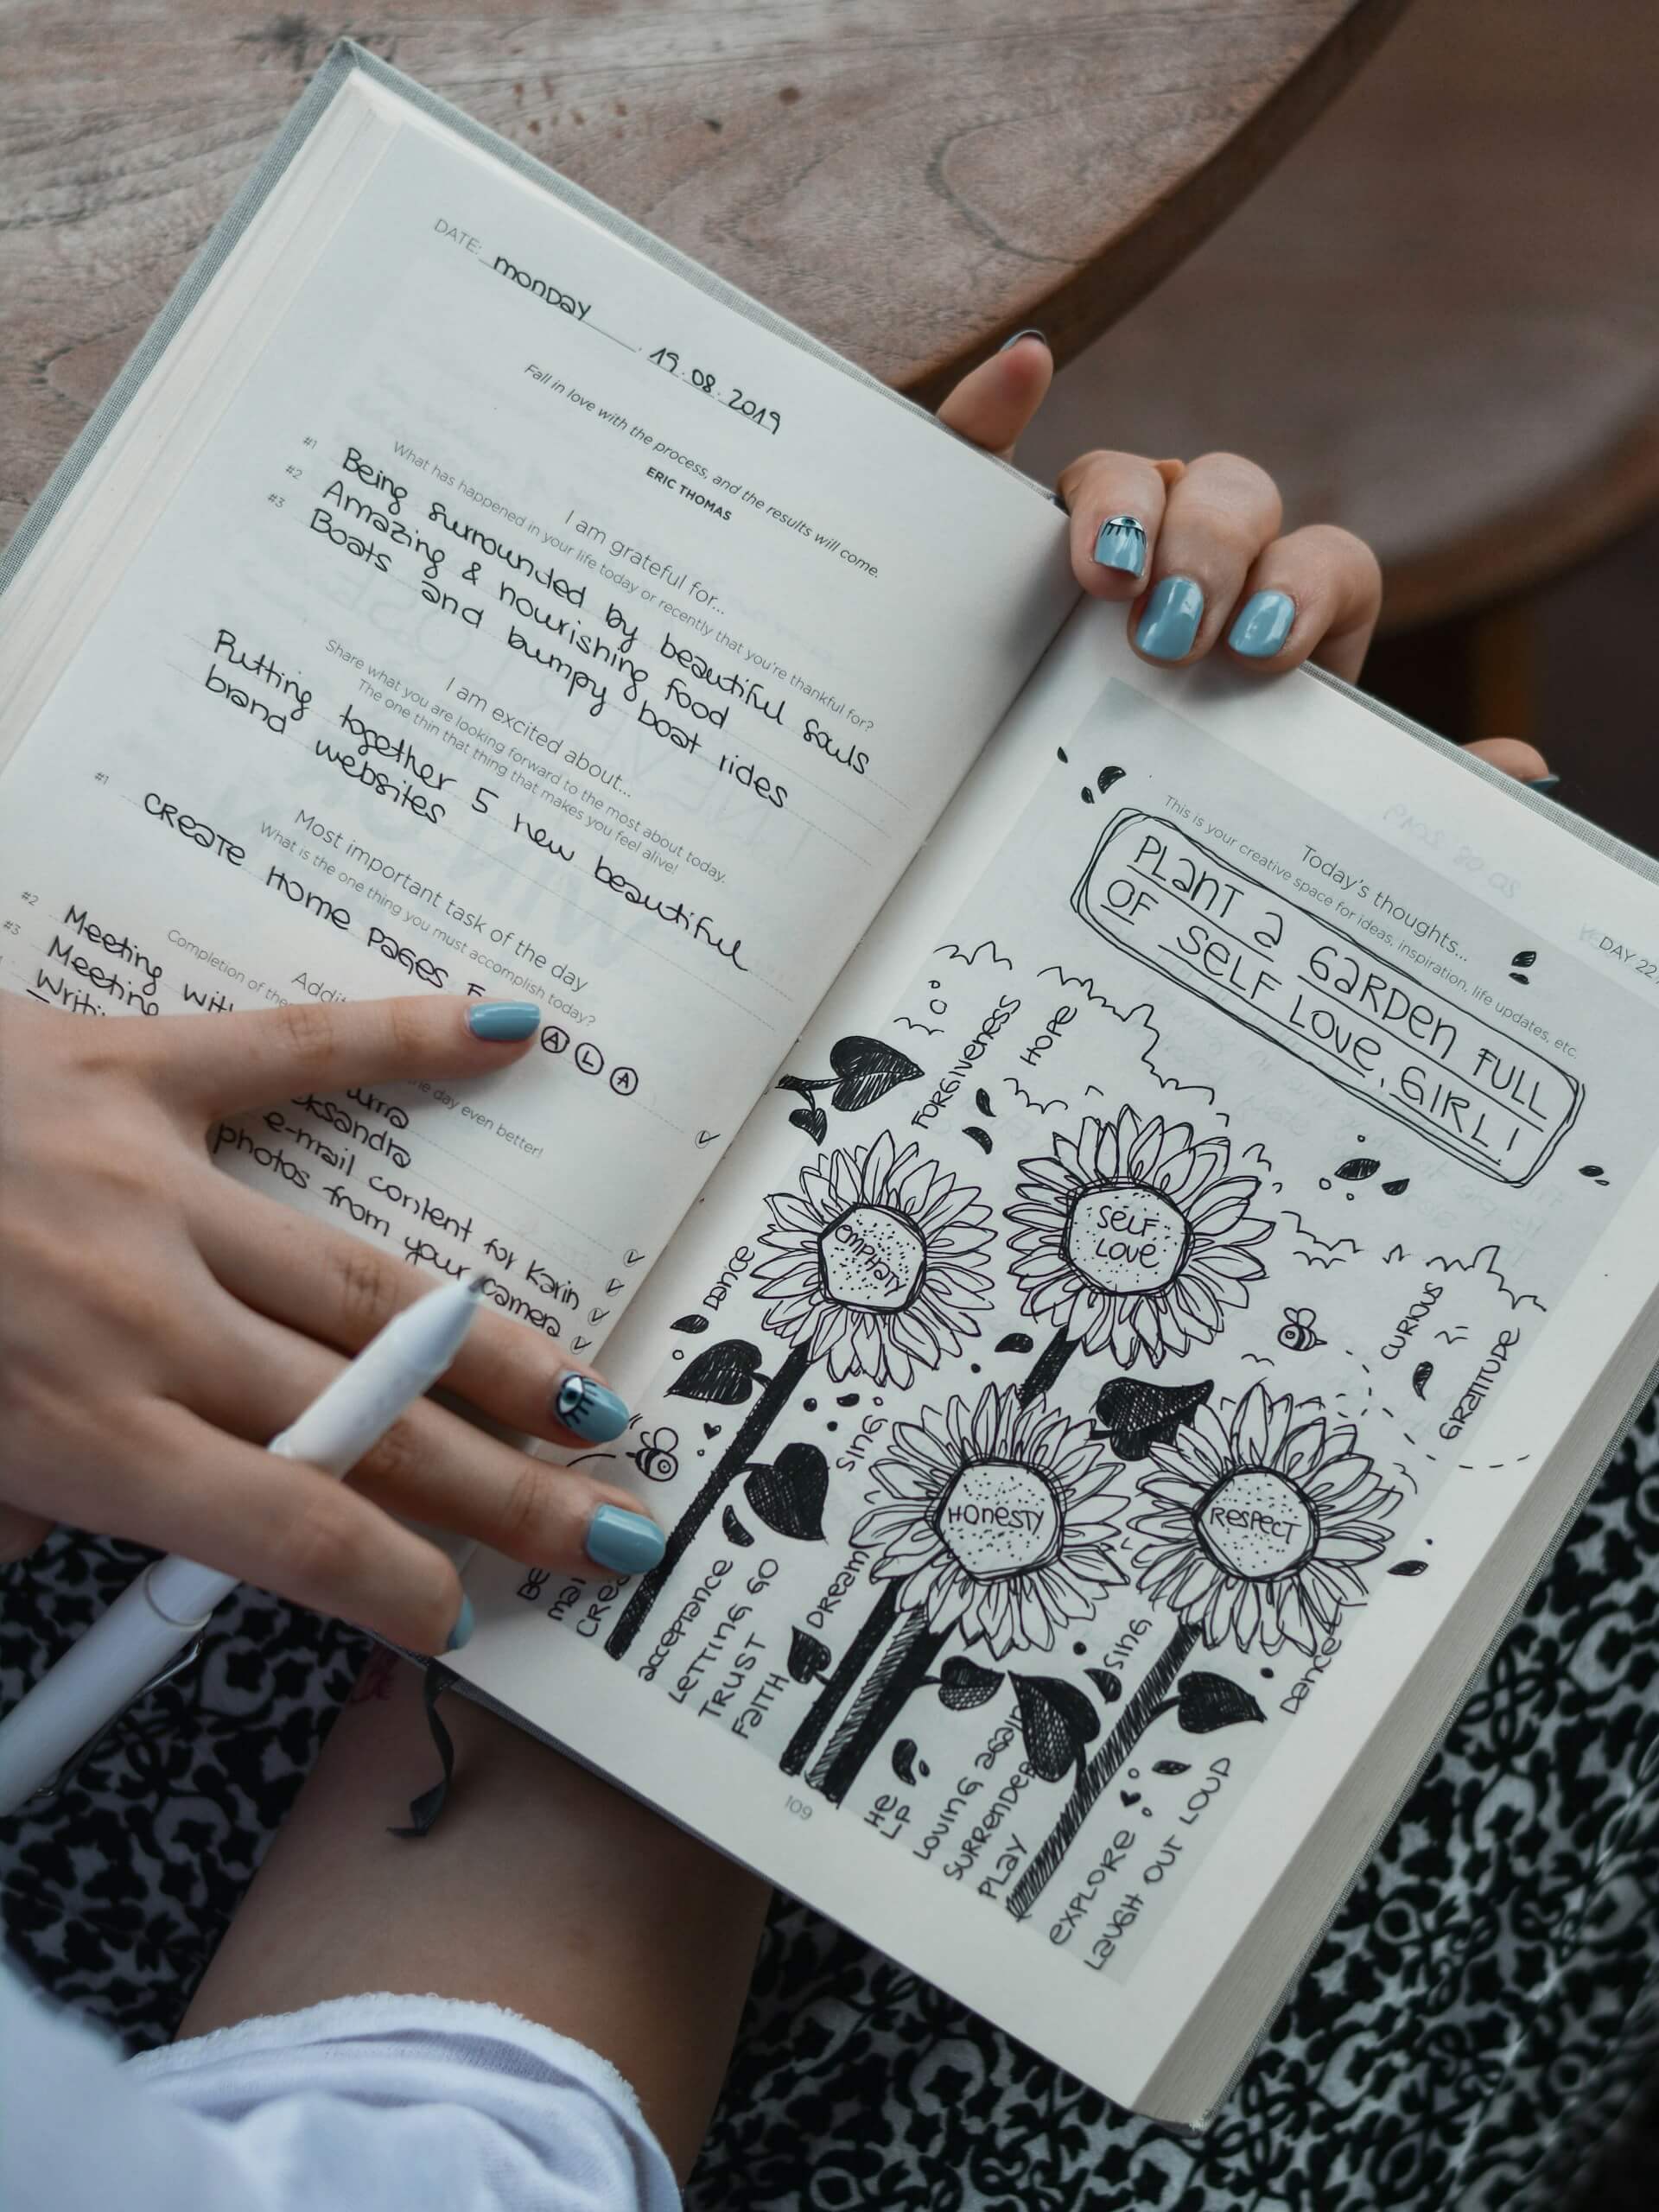 DATE: monday . 19.08.2019
Fall in love with the process, and the results will come.
ERIC THOMAS
I am grateful for...
What has happened in your life today or recently that you're thankful for?
#1 Being surrounded by beautiful souls
#2 Amazing & nourishing food
#3 Boats and bumpy boat rides
I am excited about...
Share what you are looking forward to the most about today.
The one thin that thing that makes you feel alive!
Putting together 5 new beautiful
brand websites
Most important task of the day
What is the one thing you must accomplish today?
#1 CREATE HOME PAGES
A L A
Completion of the day even better!
#2 Meeting
#3 Meeting
e-mail content for Karin
photos from your camera
109
DAY 22
Today's thoughts...
This is your creative space for ideas, inspiration, life updates, etc.
PLANT a GARDEN FULL
OF SELF LOVE, GIRL!
FORGIVENESS
HOPE
EMPHATY
SELF
LOVE
DANCE
CURIOUS
GRATITUDE
SING
HONESTY
RESPECT
DREAM
SING
DANCE
acceptance
LETTING GO
TRUST
FAITH
HE
LP
LOVING again
SURRENDER
PLAY
EXPLORE
LAUGH OUT LOUD